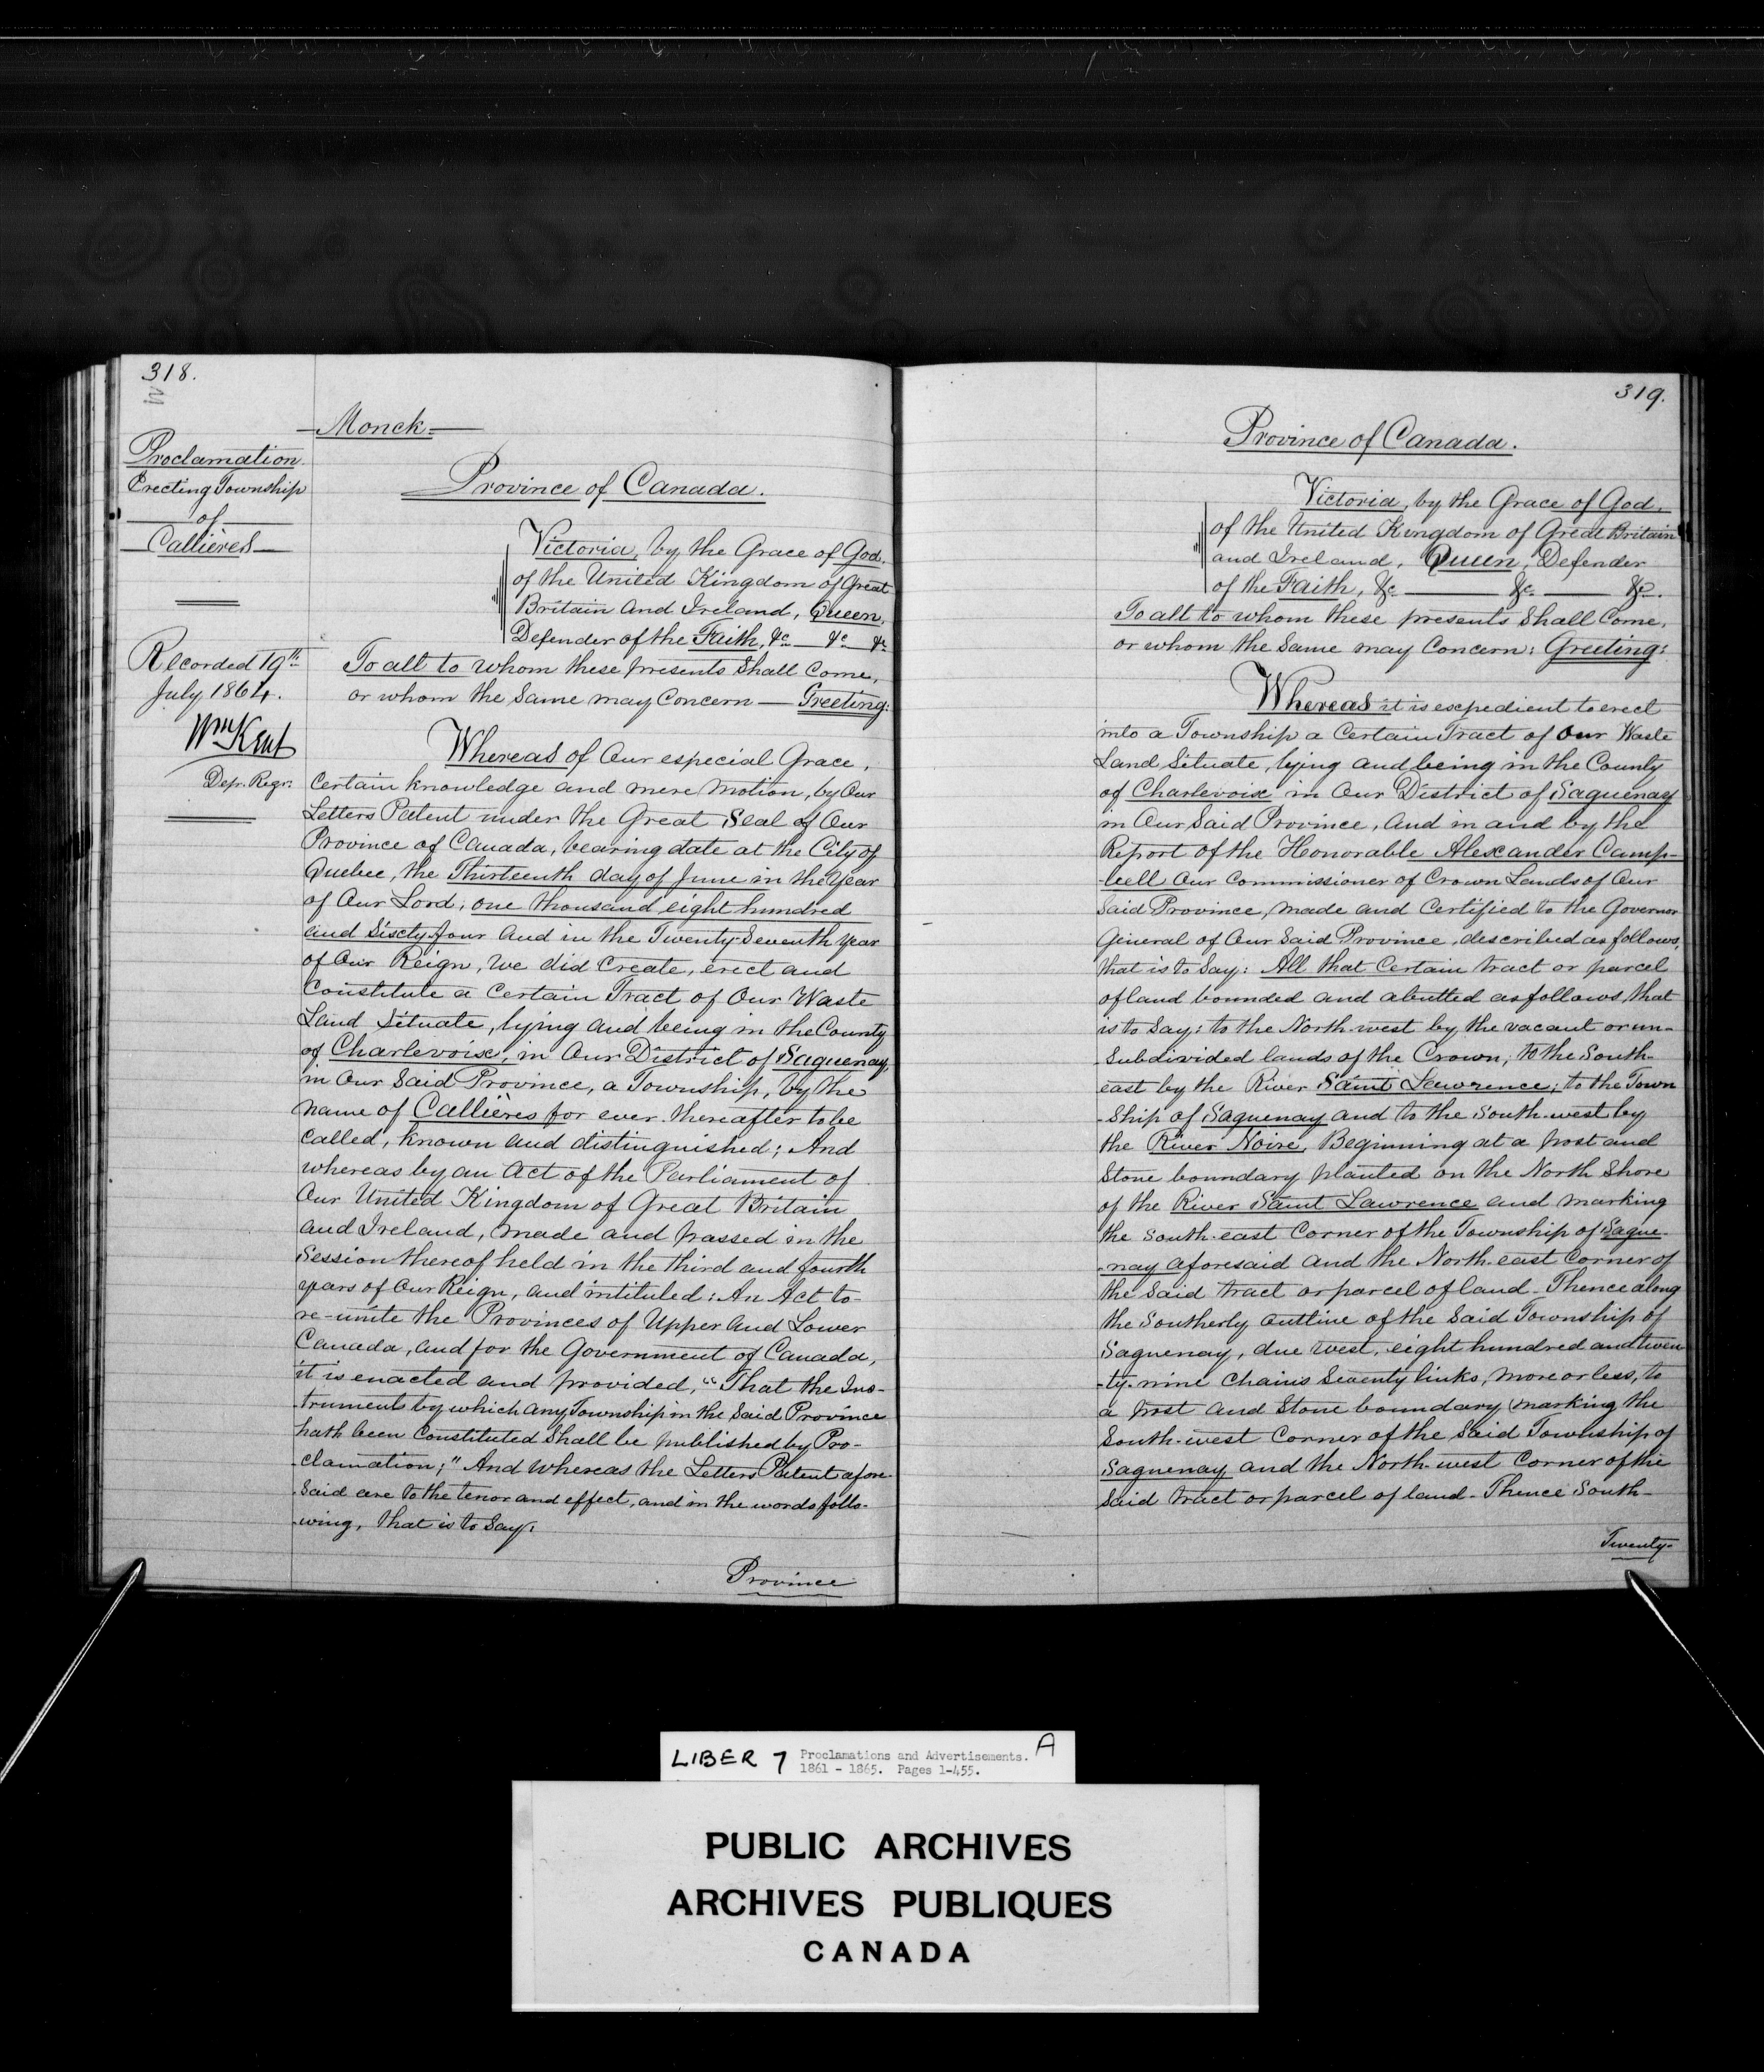 318.
Monck
Proclamation
Erecting Township
of
Callières
Recorded 19th
July 1864.
Wm Kent
Dep. Regr.
Province of Canada.
Victoria, by the Grace of God,
of the United Kingdom of Great
Britain and Ireland, Queen,
Defender of the Faith, &c — &c — &c
To all to whom these presents Shall Come,
or whom the Same may Concern — Greeting:
Whereas of Our especial Grace,
Certain knowledge and mere Motion, by Our
Letters Patent under the Great Seal of Our
Province of Canada, bearing date at the City of
Quebec, the Thirteenth day of June in the Year
of Our Lord, one thousand eight hundred
and Sixty-four and in the Twenty-Seventh year
of Our Reign, We did Create, erect and
Constitute a Certain Tract of Our Waste
Land Situate, lying and being in the County
of Charlevoix, in Our District of Saguenay,
in Our Said Province, a Township, by the
name of Callières for ever thereafter to be
Called, known and distinguished; And
whereas by an Act of the Parliament of
Our United Kingdom of Great Britain
and Ireland, made and passed in the
Session thereof held in the third and fourth
years of Our Reign, and intituled: An Act to
re-unite the Provinces of Upper and Lower
Canada, and for the Government of Canada,
it is enacted and provided, "That the Ins-
-truments by which any Township in the Said Province
hath been Constituted Shall be published by Pro-
-clamation;" And whereas the Letters Patent afore-
-Said are to the tenor and effect, and in the words follo-
-wing, that is to Say:
Province
319.
Province of Canada.
Victoria, by the Grace of God,
of the United Kingdom of Great Britain
and Ireland, Queen, Defender
of the Faith, &c — &c — &c.
To all to whom these presents Shall Come,
or whom the Same may Concern: Greeting:
Whereas it is expedient to erect
into a Township a Certain Tract of Our Waste
Land Situate, lying and being in the County
of Charlevoix in Our District of Saguenay
in Our Said Province, and in and by the
Report of the Honorable Alexander Camp-
-bell Our Commissioner of Crown Lands of Our
Said Province, made and Certified to the Governor
General of Our Said Province, described as follows,
that is to Say: All that Certain tract or parcel
of land bounded and abutted as follows, that
is to Say: to the North-west by the vacant or un-
-subdivided lands of the Crown; to the South-
east by the River Saint Lawrence; to the Town
-Ship of Saguenay and to the South-west by
the River Noire, Beginning at a post and
Stone boundary planted on the North Shore
of the River Saint Lawrence and marking
the South-east Corner of the Township of Sague-
-nay aforesaid and the North-east Corner of
the Said tract or parcel of land - Thence along
the Southerly Outline of the Said Township of
Saguenay, due West, eight hundred and twen
-ty-nine Chains Seventy links, more or less, to
a post and Stone boundary marking the
South-west Corner of the Said Township of
Saguenay and the North-west Corner of the
Said tract or parcel of land - Thence South-
Twenty-
LIBER 7 Proclamations and Advertisements. A
1861 - 1865. Pages 1-455.
PUBLIC ARCHIVES
ARCHIVES PUBLIQUES
CANADA